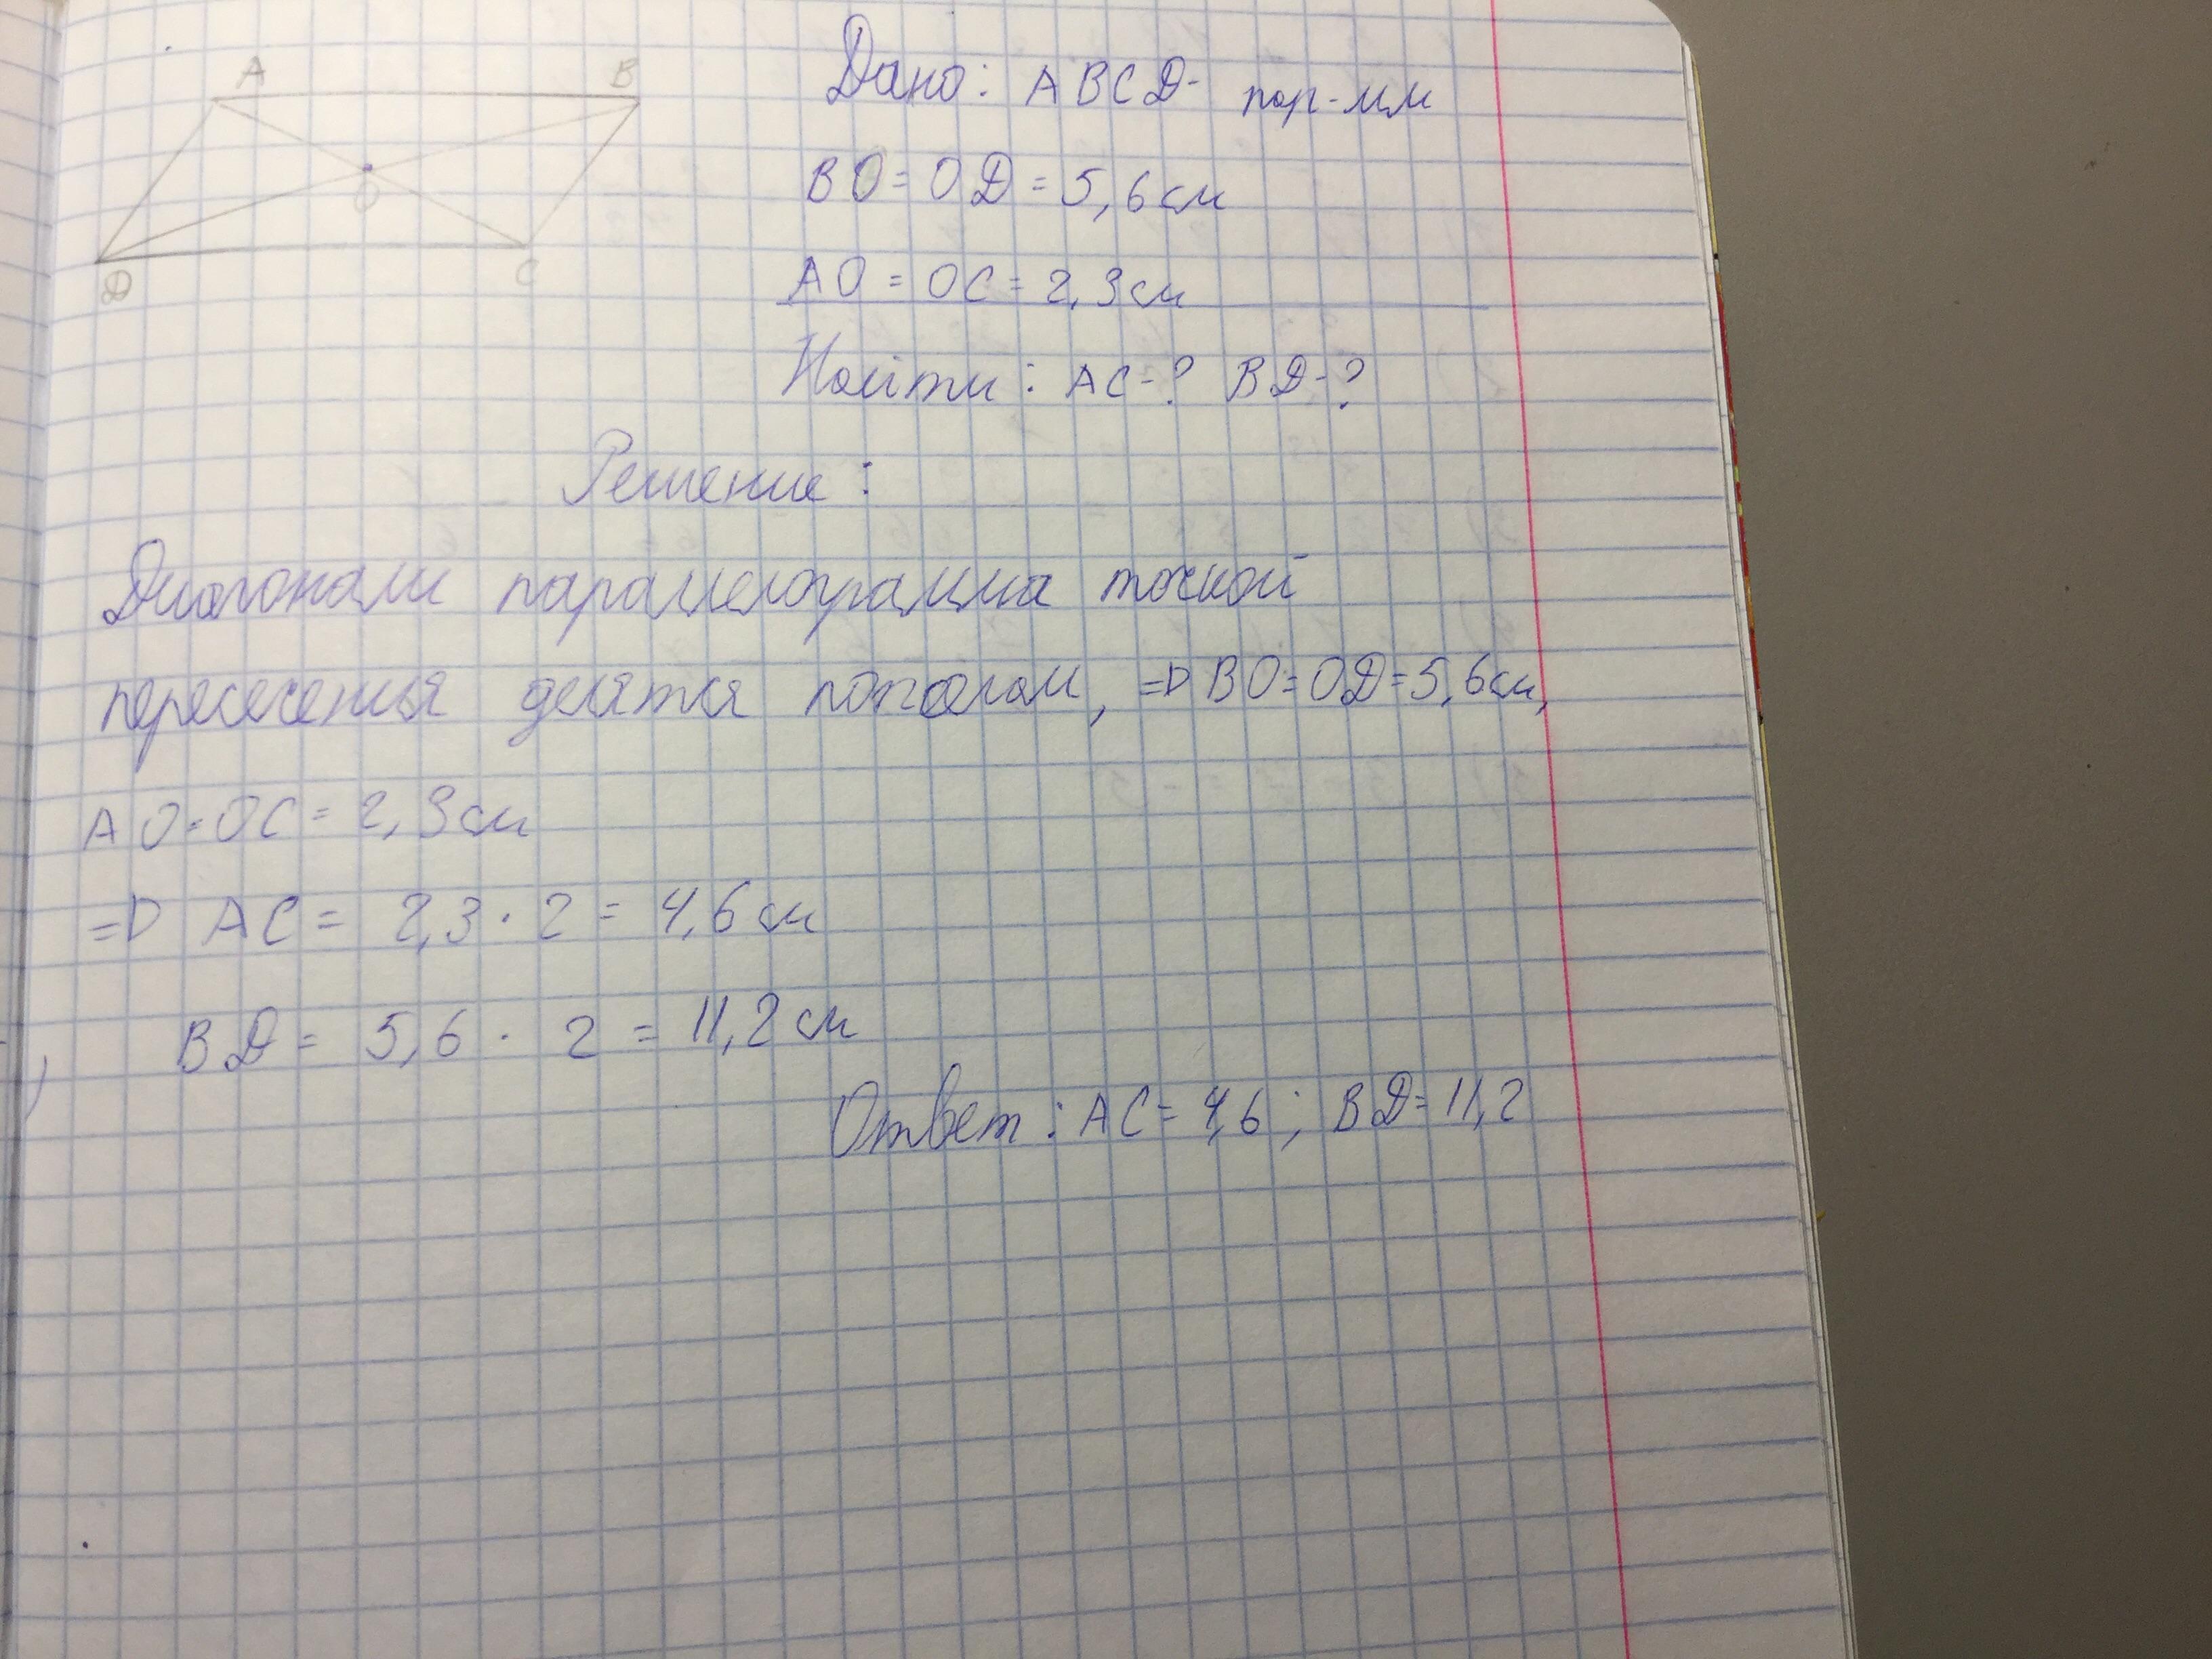 A B
O
D C
Дано: ABCD- пар-мм
BO = OD = 5,6 см
AO = OC = 2,3 см
Найти: AC-? BD-?
Решение:
Диагонали параллелограмма точкой
пересечения делятся пополам, => BO = OD = 5,6 см,
AO = OC = 2,3 см
=> AC = 2,3 · 2 = 4,6 см
BD = 5,6 · 2 = 11,2 см
Ответ: AC = 4,6; BD = 11,2